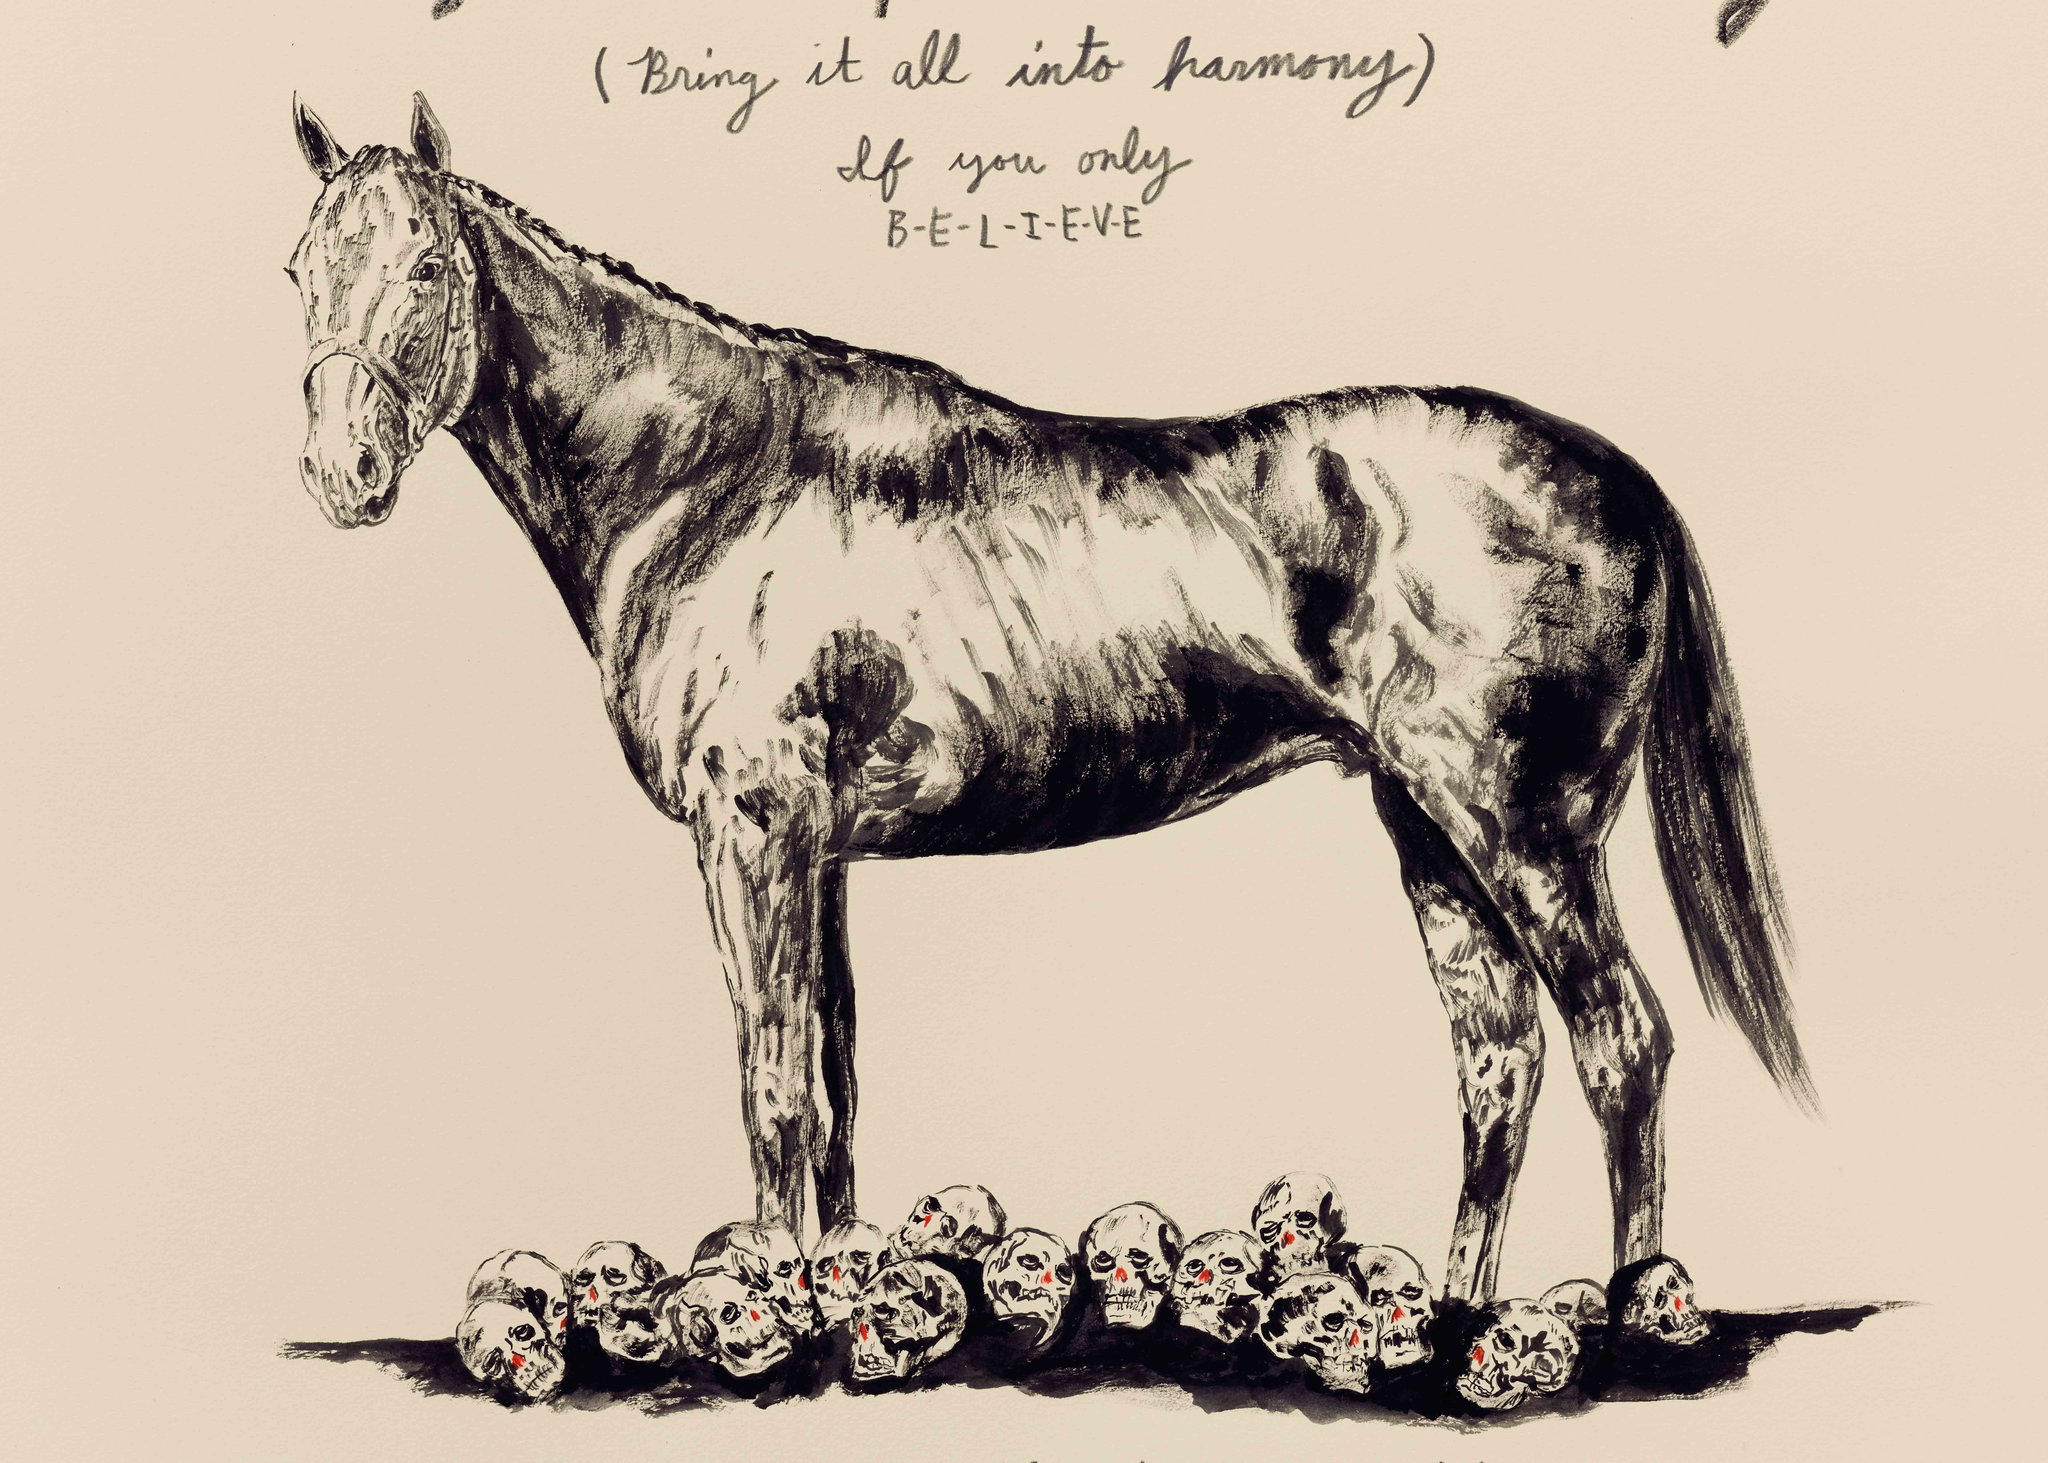 (Bring it all into harmony)
If you only
B-E-L-I-E-V-E